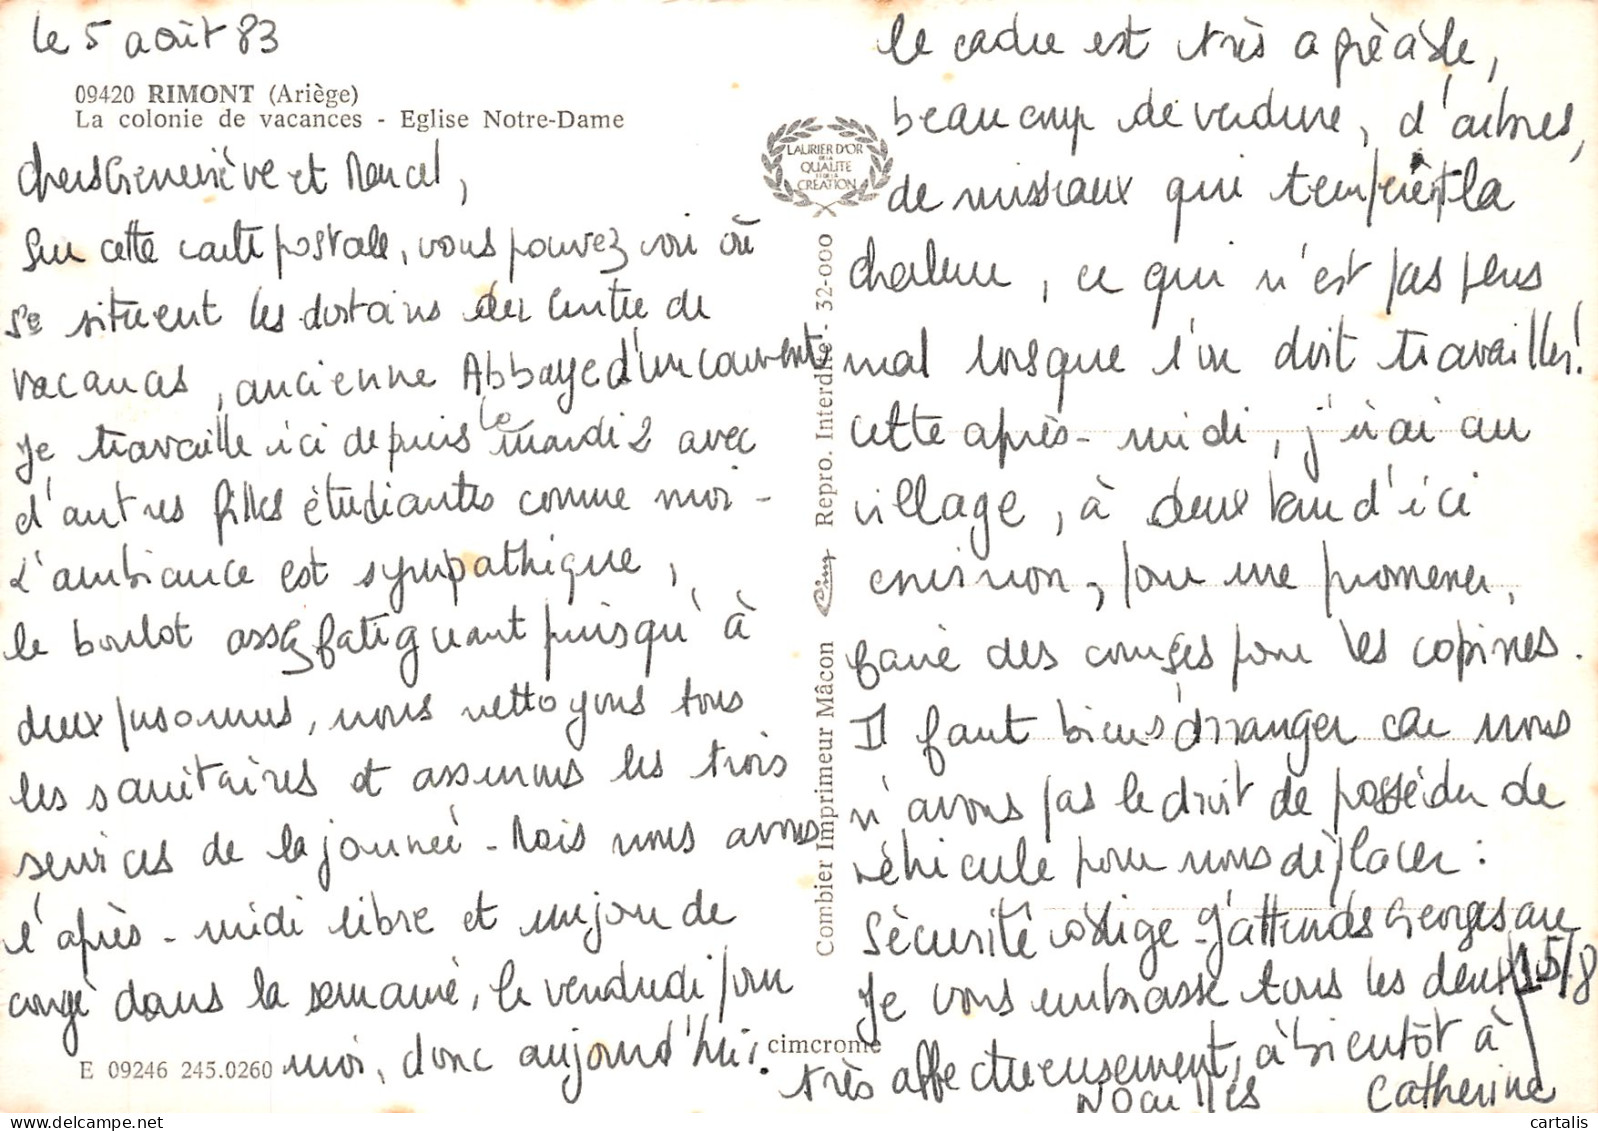 le 5 août 83
09420 RIMONT (Ariège)
La colonie de vacances - Eglise Notre-Dame
Chers Geneviève et Marcel,
Sur cette carte postale, vous pouvez voir où
se situent les dortoirs du Centre de
vacances, ancienne Abbaye d'un couvent
Je travaille ici depuis le mardi 2 avec
d'autres filles étudiantes comme moi -
L'ambiance est sympathique,
le boulot assez fatiguant puisqu'à
deux personnes, nous nettoyons tous
les sanitaires et assurons les trois
services de la journée - Mais nous avons
l'après-midi libre et un jour de
congé dans la semaine, le vendredi pour
moi, donc aujourd'hui.
E 09246 245.0260
LAURIER D'OR
DE LA
QUALITE
ET DE LA
CREATION
Combier Imprimeur Mâcon Cim Repro. Interdite - 32-000
cimcrome
le cadre est très agrèable,
beaucoup de verdure, d'arbres,
de ruisseaux qui tempèrent la
chaleur, ce qui n'est pas plus
mal lorsque l'on doit travailler!
cette après-midi, j'irai au
village, à deux km d'ici
environ, pour me promener,
faire des courses pour les copines.
Il faut bien s'arranger car nous
n'avons pas le droit de posséder de
véhicule pour nous déplacer :
sècurité oblige - J'attends Georges au
15/8
Je vous embrasse tous les deux
très affectueusement, à bientôt à
Noailles
Catherine
cartalis.com